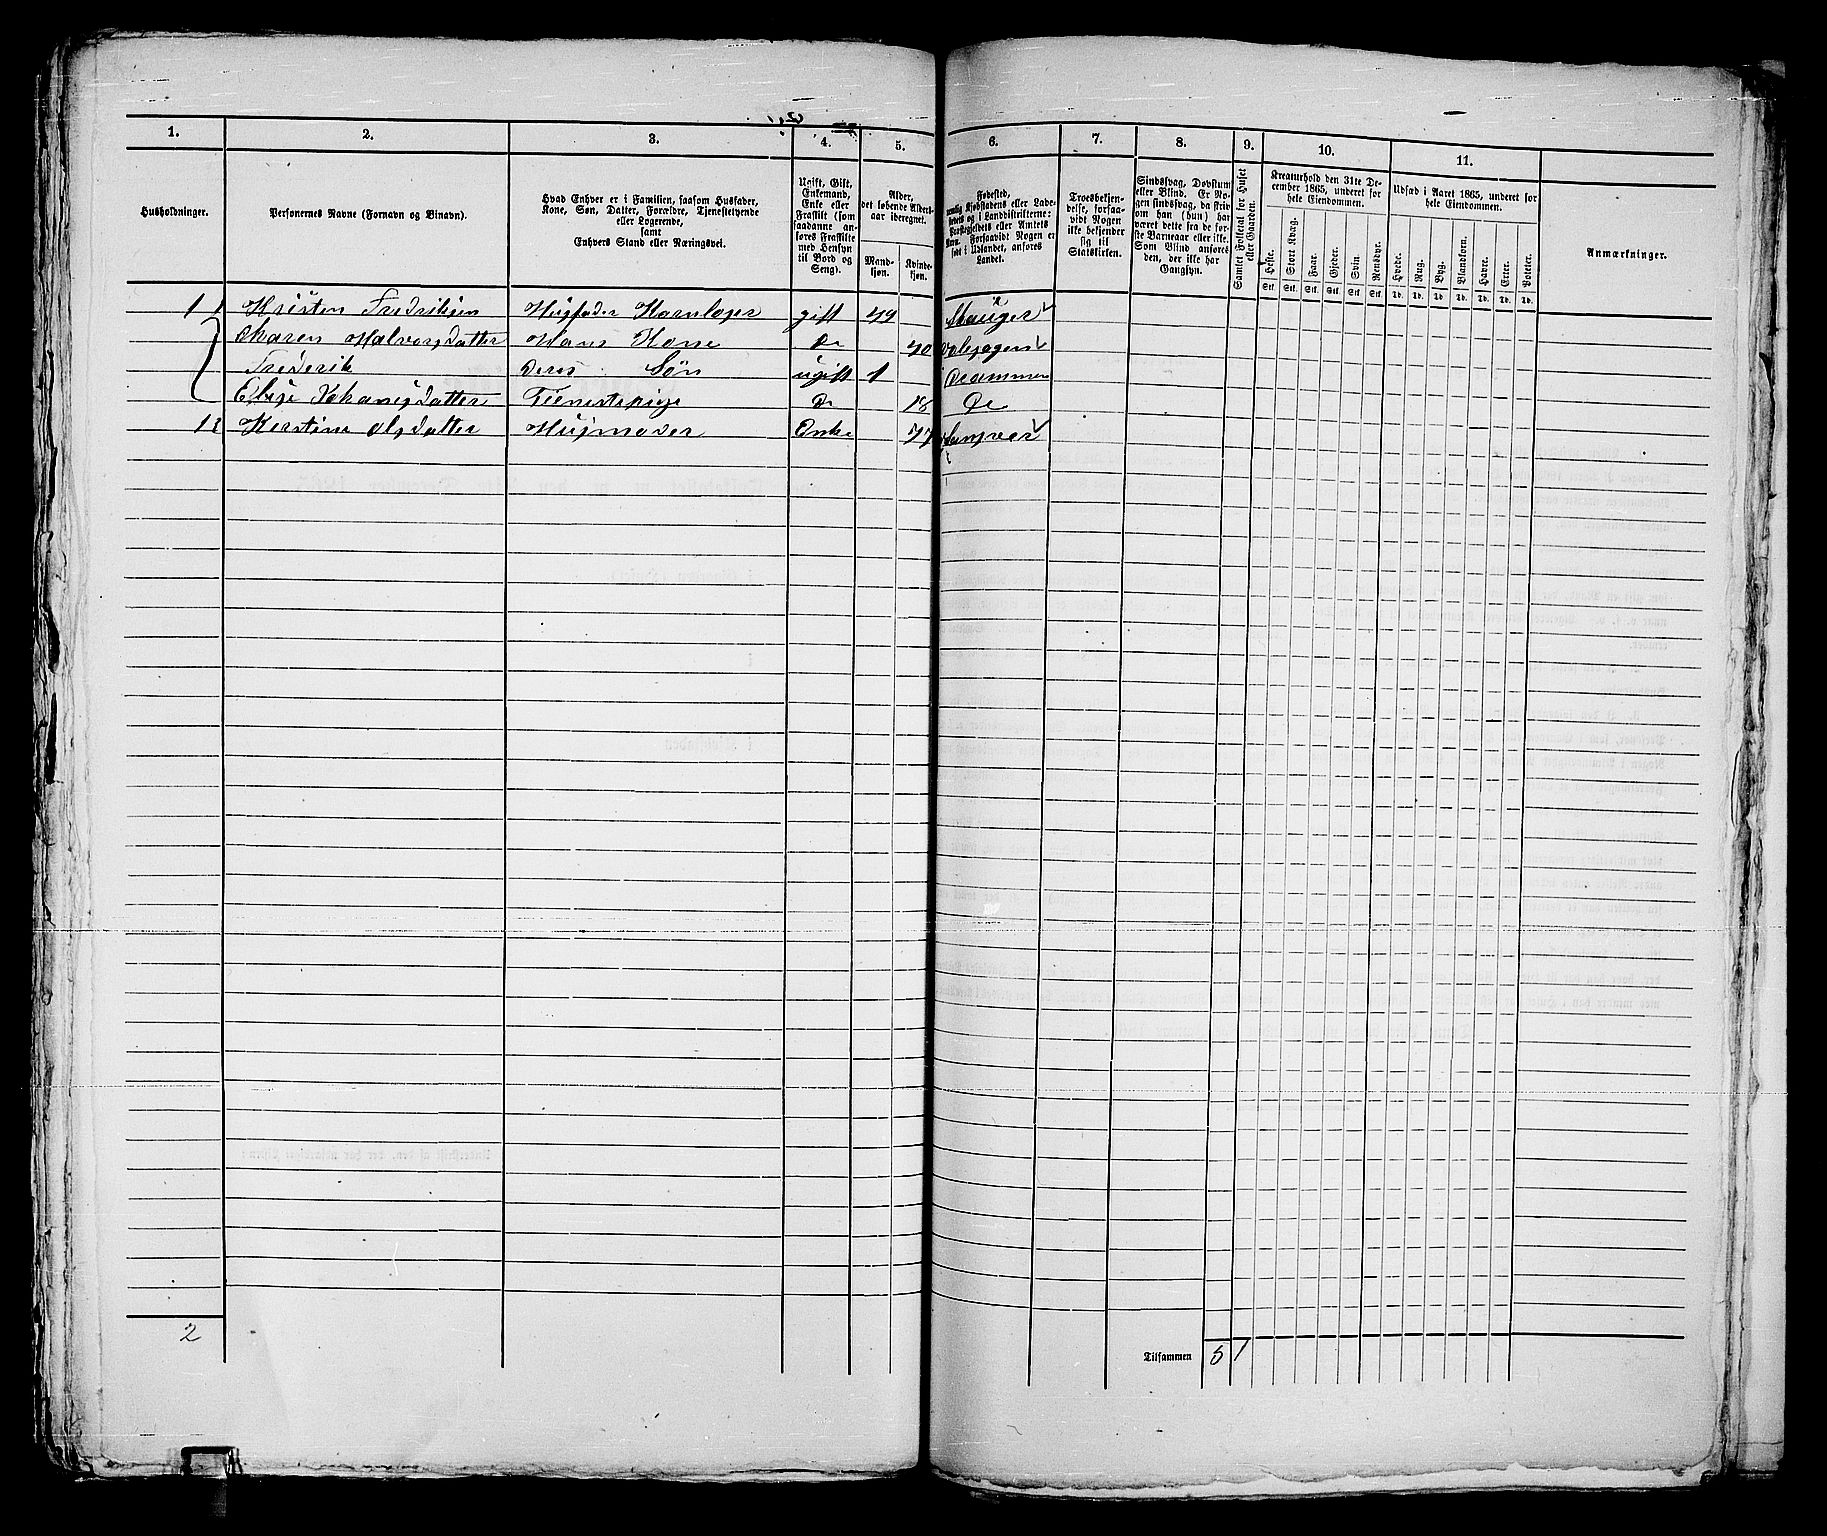 1. 2. 3. 4. 5. 6. 7. 8. 9. 10. 11.
Husholdninger.
Personernes Navne (Fornavn og Binavn).
Hvad Enhver er i Familien, saasom Husfader,
Kone, Søn, Datter, Forældre, Tjenestetyende
eller Logerende,
samt
Enhvers Stand eller Næringsvei.
Ugift, Gift,
Enkemand,
Enke eller
Fraskilt (som
saadanne an-
føres Fraskilte
med Hensyn
til Bord og
Seng).
Alder,
det løbende Alders-
aar iberegnet.
Mand-
kjøn.
Kvinde-
kjøn.
Fødested,
nemlig Kjøbstadens eller Lade-
stedets og i Landdistrikterne:
Præstegjeldets eller Amtets
Navn. Forsaavidt Nogen er
født i Udlandet, anføres
Landet.
Troesbekjen-
delse, forsaa-
vidt Nogen
ikke bekjender
sig til
Statskirken.
Sindssvag, Døvstum
eller Blind. Er No-
gen sindssvag, da skriv
om han (hun) har
været dette fra de før-
ste Barneaar eller ikke.
Som Blind anføres
den, der ikke har
Gangsyn.
Samlet Folketal for Huset
eller Gaarden.
Kreaturhold den 31te De-
cember 1865, underet for
hele Eiendommen.
Heste. Stort Kvæg. Faar. Gjeder. Svin. Rensdyr.
Stk. Stk. Stk. Stk. Stk. Stk.
Udsæd i Aaret 1865, underet for
hele Eiendommen.
Hvede. Rug. Byg. Blandkorn. Havre. Erter. Poteter.
Td. Td. Td. Td. Td. Td. Td.
Anmærkninger.
1 Kristen Fredriksen Husfader gift 49
Maren Halvorsdatter Hans Kone Do 40
Frederik Deres Søn ugift 1 Drammen
Johanesdatter Tienestepige Do 18 Do
Kerstine Olsdatter Husmoder Enke 77
2
Tilsammen 5 1